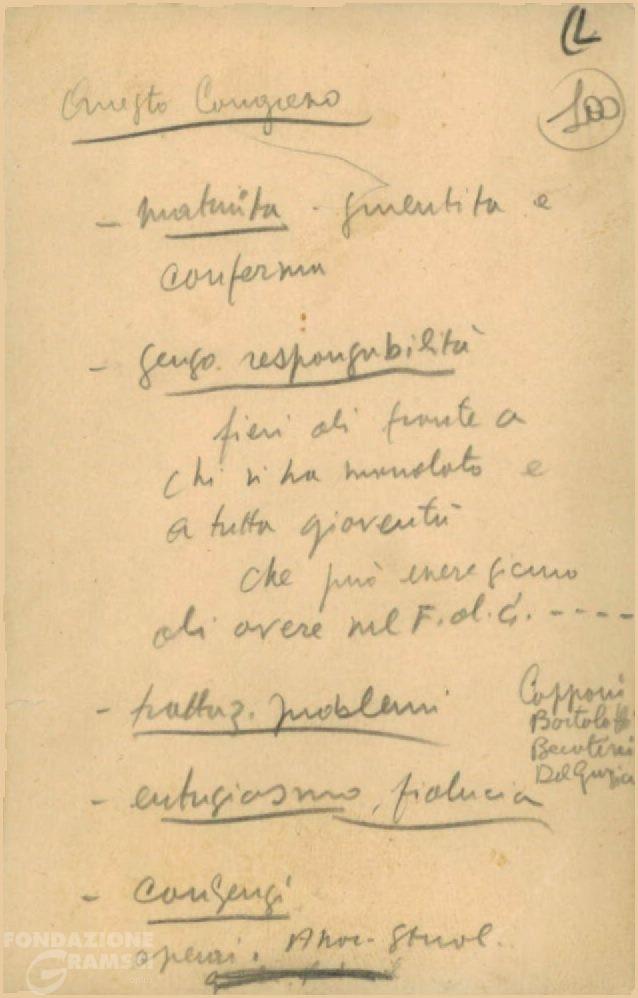 100
Questo Congresso
- maturità - smentita e
conferma
- senso responsabilità
fieri di fronte a
chi vi ha mandato e
a tutta gioventù
che può essere sicuro
di avere nel F.d.G. ----
- trattaz. problemi
Capponi
- entusiasmo, fiducia
- consensi
operai.
FONDAZIONE
GRAMSCI